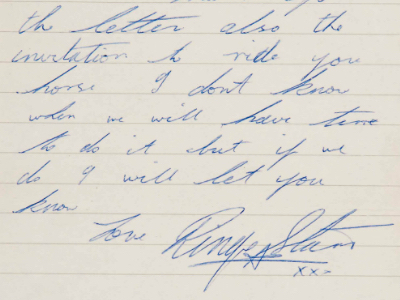 the letter also the
invitation to ride you
horse I don't know
when we will have time
to do it but if we
do I will let you
know
Love Ringo Starr
xxx